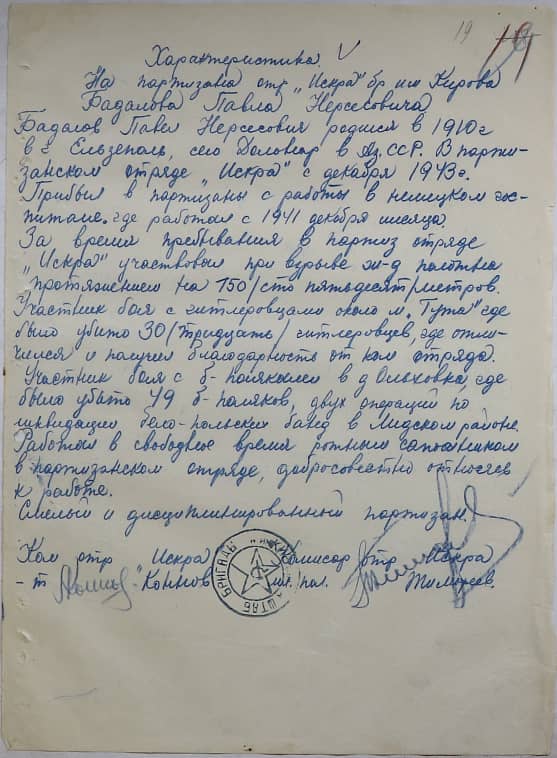 19
19
Характеристика. V
На партизана отр „Искра" бр. им Кирова
Бадалова Павла Нерсесовича
Бадалов Павел Нерсесович родился в 1910 г
в г. Ельзеполь, село Доловар в Аз. ССР. В парти-
занском отряде „Искра" с декабря 1943 г.
Прибыл в партизаны с работы в немецком гос-
питале. где работал с 1941 декабря месяца.
За время пребывания в партиз отряде
„Искра" участвовал при взрыве ж-д полотна
протяжением на 150/сто пятьдесят/метров.
Участник боя с гитлеровцами около м. „Тута" где
было убито 30/тридцать/ гитлеровцев, где отли-
чился и получил благодарность от ком отряда.
Участник боя с б-поляками в д Ольховка, где
было убито 49 б-поляков, двух операций по
ликвидации бело-польских банд в Лидском районе.
Работал в свободное время ротным сапожником
в партизанском отряде, добросовестно относясь
к работе.
Смелый и дисциплинированный партизан.
Ком отр Искра Комисар отр Искра
- т Коннов
БРИГАДЫ ШТАБ